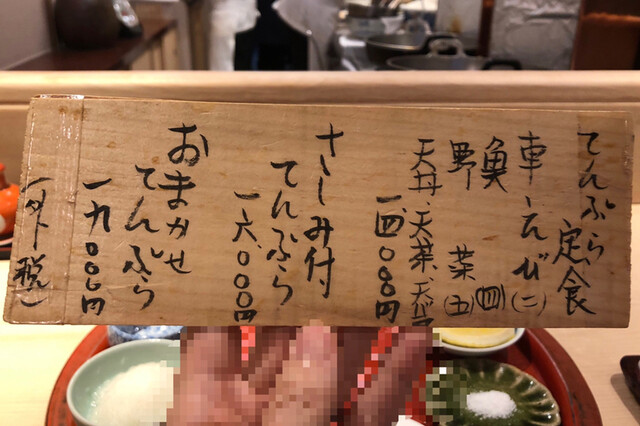 てんぷら定食
車えび(二)
魚(四)
野菜(五)
天丼、天茶、天バラ
一四〇〇〇円
さしみ付
てんぷら
一六、〇〇〇円
おまかせ
てんぷら
一九〇〇〇円
(外税)